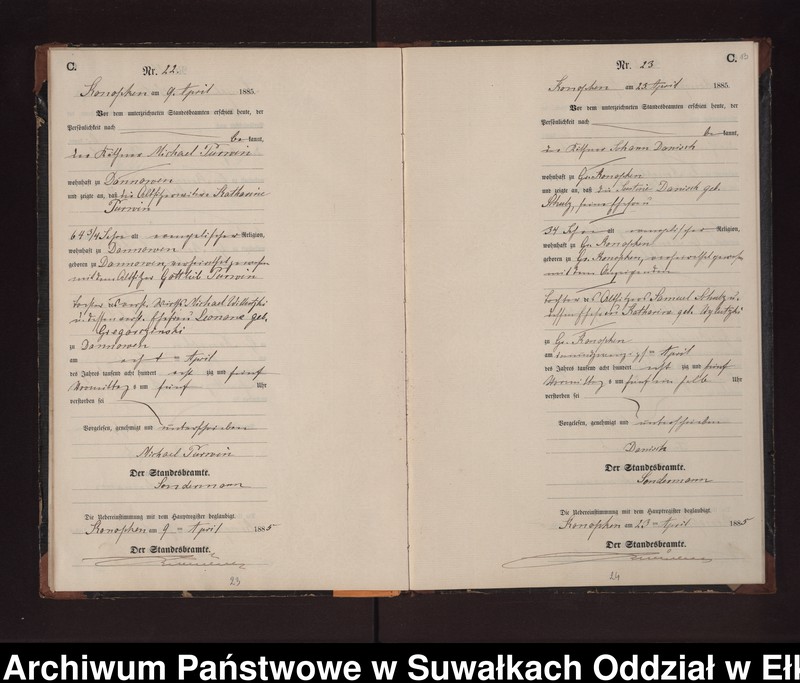 C.
Nr. 22.
Konopken am 9. April 1885.
Vor dem unterzeichneten Standesbeamten erschien heute, der
Persönlichkeit nach
bekannt,
der Käthner Michael Turowin
wohnhaft zu Dannowen
und zeigte an, daß die Altsitzerwittwe Katharine
Turowin
64 3/4 Jahre alt evangelischer Religion,
wohnhaft zu Dannowen
geboren zu Dannowen, verheirathet gewesen
mit dem Altsitzer Gottlieb Turowin
Tochter des verst. Wirths Michael
u. dessen verst. Ehefrau geb.
zu Dannowen
am acht ten April
des Jahres tausend acht hundert acht zig und fünf
Vormittag s um fünf Uhr
verstorben sei
Vorgelesen, genehmigt und unterschrieben
Michael Turowin
Der Standesbeamte.
Sondermann
Die Uebereinstimmung mit dem Hauptregister beglaubigt.
Konopken am 9 ten April 1885
Der Standesbeamte.
23
C.
Nr. 23
Konopken am 23 April 1885.
Vor dem unterzeichneten Standesbeamten erschien heute, der
Persönlichkeit nach
bekannt,
der Käthner Johann Danisch
wohnhaft zu Gr. Konopken
und zeigte an, daß die Danisch geb.
Schulz, seine Ehefrau
34 Jahre alt evangelischer Religion,
wohnhaft zu Gr. Konopken
geboren zu Gr. Konopken, verheirathet gewesen
mit dem Anzeigenden
Tochter des Altsitzers Samuel Schulz u.
dessen Ehefrau Katharine geb.
zu Gr. Konopken
am zwanzig ten April
des Jahres tausend acht hundert acht zig und fünf
Vormittag s um fünf ein halb Uhr
verstorben sei
Vorgelesen, genehmigt und unterschrieben
Danisch
Der Standesbeamte.
Sondermann
Die Uebereinstimmung mit dem Hauptregister beglaubigt.
Konopken am 23 ten April 1885
Der Standesbeamte.
24
Archiwum Państwowe w Suwałkach Oddział w Ełk